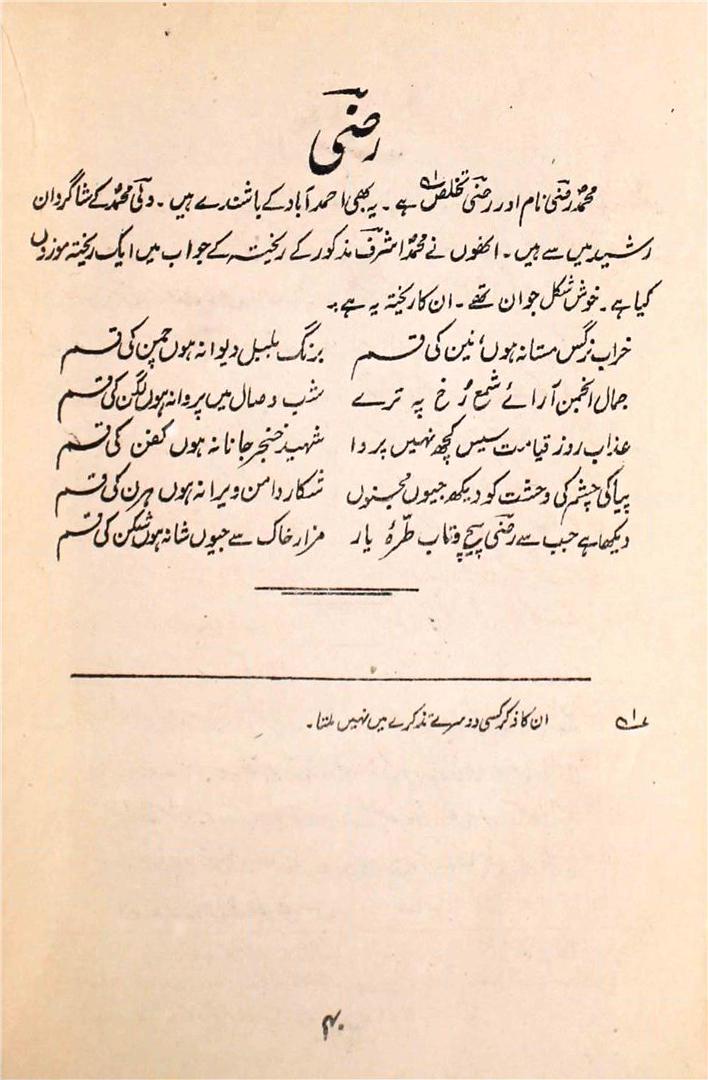 رضی
محمد رضی نام اور رضی تخلص۱؎ ہے۔ یہ بھی احمد آباد کے باشندے ہیں۔ ولی محمد کے شاگردان
رشید میں سے ہیں۔ انھوں نے محمد اشرف مذکور کے ریختہ کے جواب میں ایک ریختہ موزوں
کیا ہے۔ خوش شکل جوان تھے۔ ان کا ریختہ یہ ہے:۔
خراب نرگس مستانہ ہوں، نین کی قسم برنگ بلبل دیوانہ ہوں چمن کی قسم
جمال انجمن آرائے شمع رخ پہ ترے شب وصال میں پروانہ ہوں لگن کی قسم
عذاب روز قیامت سیس کچھ نہیں پروا شہید خنجر جانانہ ہوں کفن کی قسم
پیا کی چشم کی وحشت کو دیکھ جیوں مجنوں شکار دامن ویرانہ ہوں ہرن کی قسم
دیکھا ہے جب سے رضی پیچ و تاب طرۂ یار مزار خاک سے جیوں شانہ ہوں شکن کی قسم
۱؎ ان کا ذکر کسی دوسرے تذکرے میں نہیں ملتا۔
۴۰